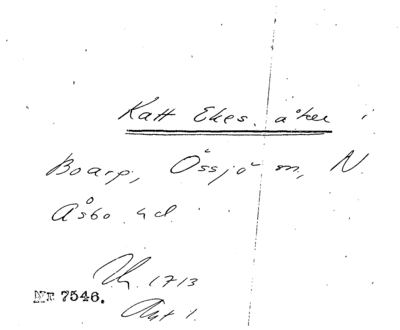 Katt Ekes. åker i
Boarp, Össjö sn, N.
Åsbo hd.
1713
Nr 7546.
Akt 1.